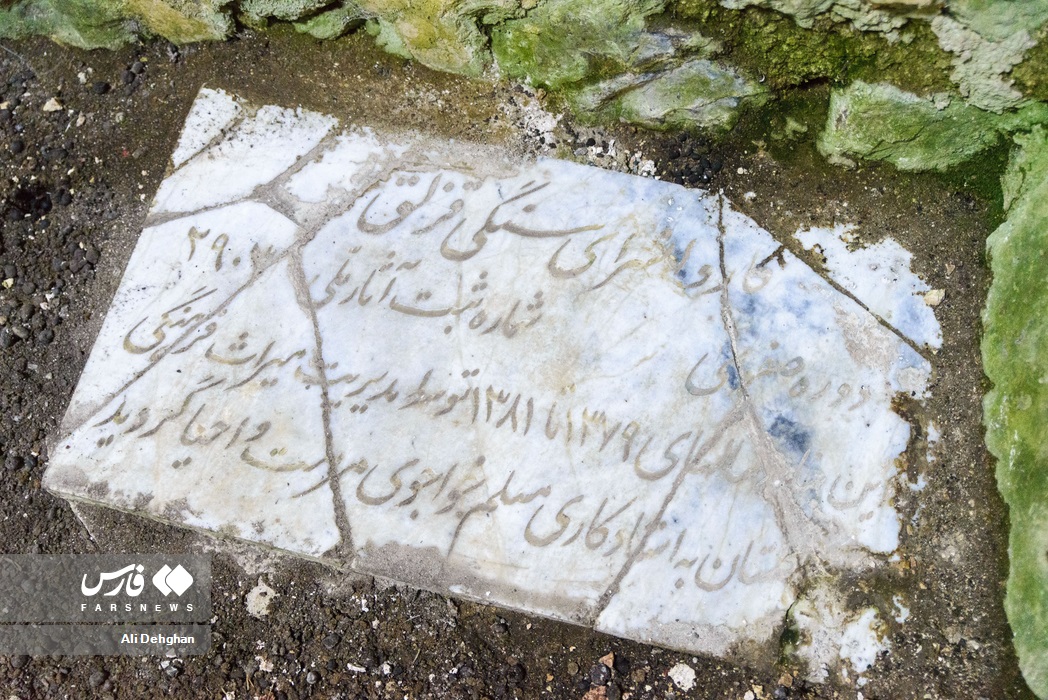 کاروانسرای سنگی قزلق
دوره صفوی شماره ثبت آثار ملی ۲۹۰۷
این بنا سالهای ۱۳۷۹ تا ۱۳۸۱ توسط مدیریت میراث فرهنگی
به استادکاری مسلم خواجوی مرمت و احیا گردید
فارس
FARSNEWS
Ali Dehghan